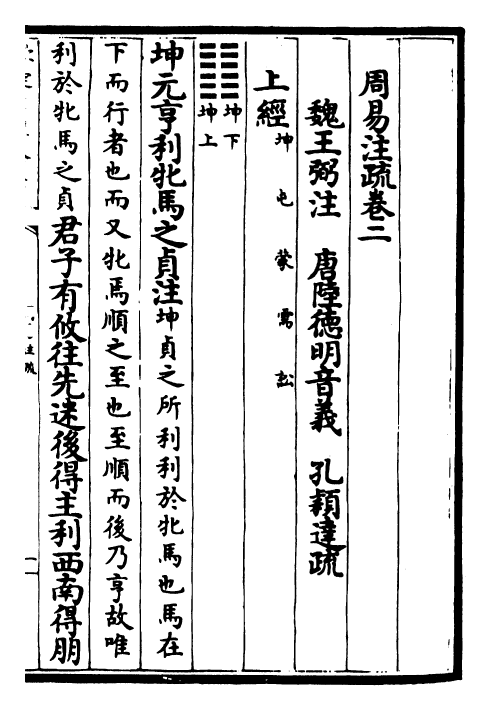 周易注疏卷二
魏王弼注　唐陸德明音義　孔穎達疏
上經坤　屯　蒙　需　訟
䷁坤下
坤上
坤元亨利牝馬之貞注坤貞之所利利於牝馬也馬在
下而行者也而又牝馬順之至也至順而後乃亨故唯
利於牝馬之貞君子有攸往先迷後得主利西南得朋